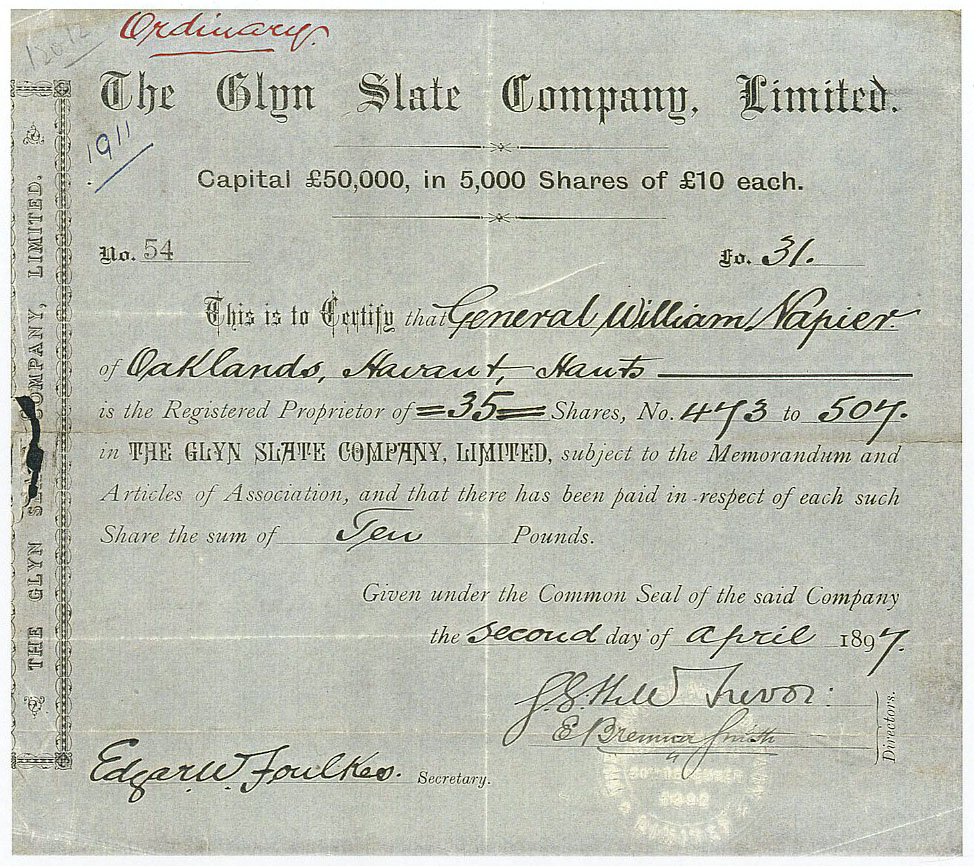 Ordinary.
The Glyn Slate Company, Limited.
1911
Capital £50,000, in 5,000 Shares of £10 each.
No. 54 Fo. 31.
This is to Certify that General William Napier.
of Oaklands, Havant, Hants
is the Registered Proprietor of =35= Shares, No. 473 to 507.
in THE GLYN SLATE COMPANY, LIMITED, subject to the Memorandum and
Articles of Association, and that there has been paid in respect of each such
Share the sum of Ten Pounds.
Given under the Common Seal of the said Company
the second day of april 1897.
Hill Trevor:
Smith
Directors.
Edgar W. Foulkes. Secretary.
THE GLYN SLATE COMPANY, LIMITED.